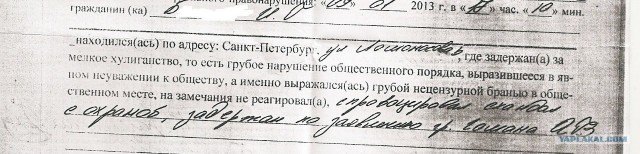 правонарушения: «09» 01 2013 г. в «12» час. «10» мин.
гражданин (ка)
находился(ась) по адресу: Санкт-Петербург, ул Ломоносова, где задержан(а) за
мелкое хулиганство, то есть грубое нарушение общественного порядка, выразившееся в яв-
ном неуважении к обществу, а именно выражался(ась) грубой нецензурной бранью в обще-
ственном месте, на замечания не реагировал(а), спровоцировал скандал
с охраной, задержан по заявлению гр.
YAPLAKAL.COM